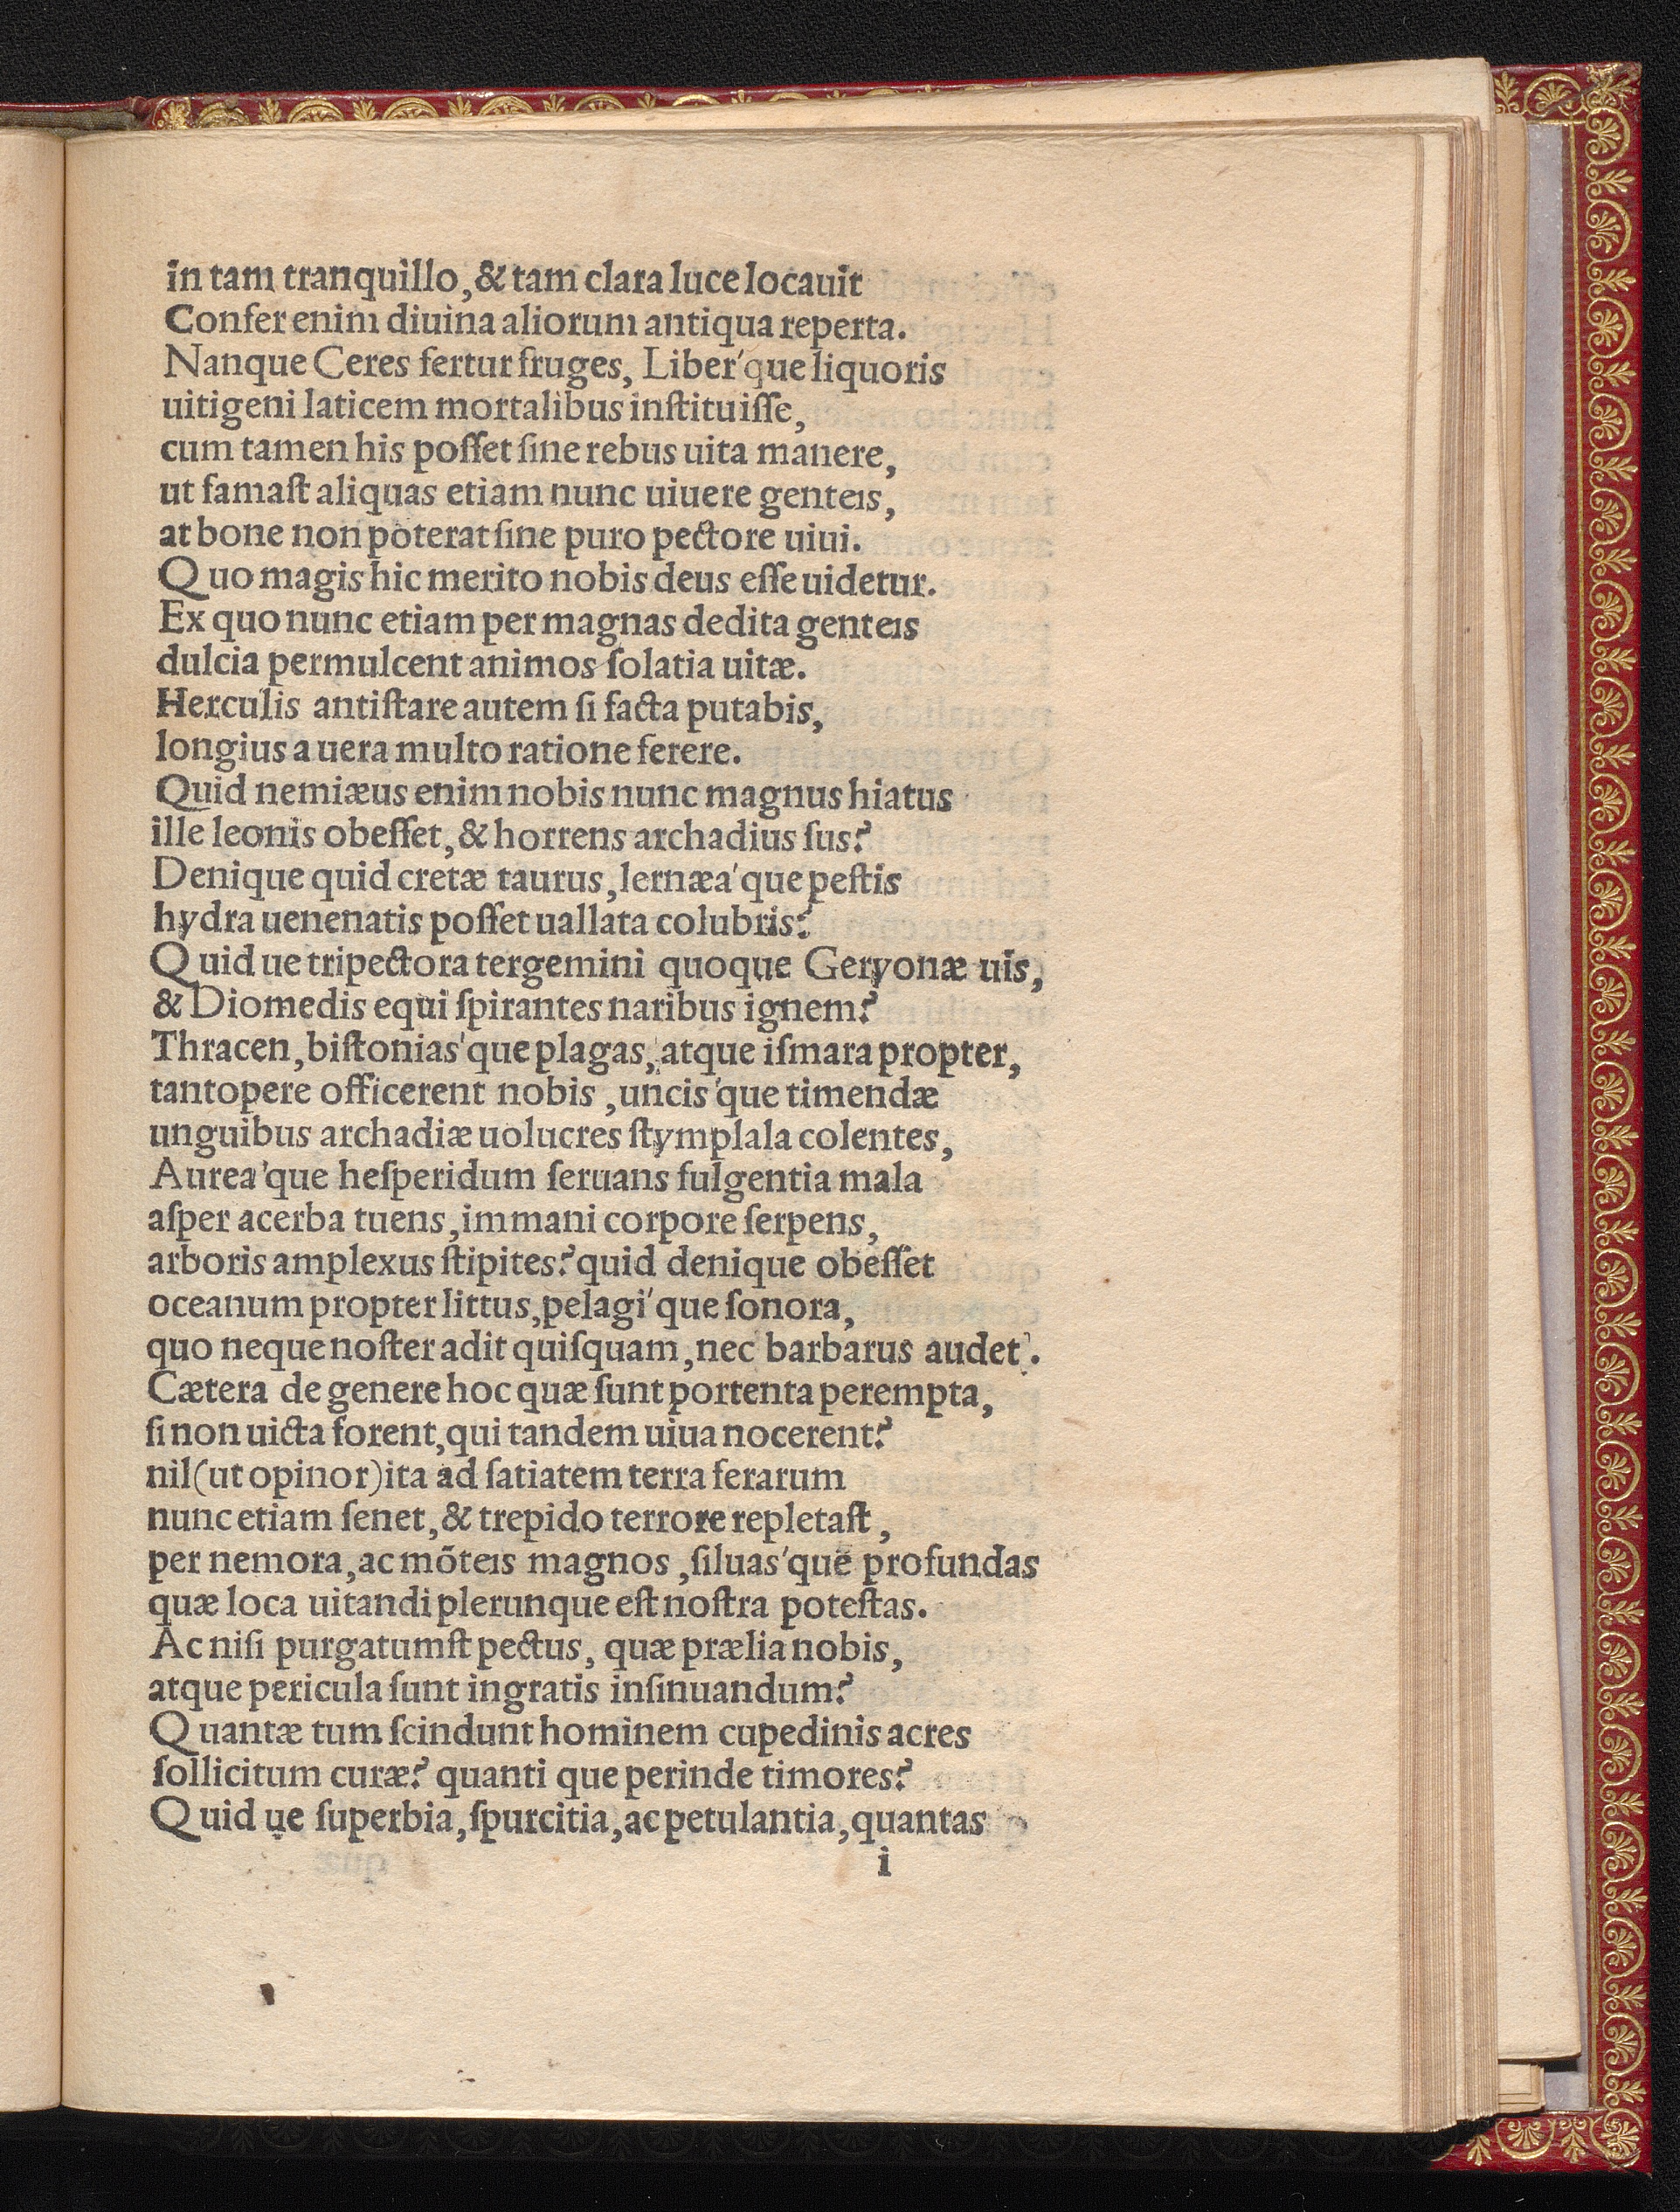 in tam tranquillo, & tam clara luce locauit
Confer enim diuina aliorum antiqua reperta.
Nanque Ceres fertur fruges, Liber'que liquoris
uitigeni laticem mortalibus inſtituiſſe,
cum tamen his poſſet ſine rebus uita manere,
ut famaſt aliquas etiam nunc uiuere genteis,
at bone non poterat ſine puro pectore uiui.
Quo magis hic merito nobis deus eſſe uidetur.
Ex quo nunc etiam per magnas dedita genteis
dulcia permulcent animos ſolatia uitæ.
Herculis antiſtare autem ſi facta putabis,
longius a uera multo ratione ferere.
Quid nemiæus enim nobis nunc magnus hiatus
ille leonis obeſſet, & horrens archadius ſus?
Denique quid cretæ taurus, lernæa'que peſtis
hydra uenenatis poſſet uallata colubris?
Quid ue tripectora tergemini quoque Geryonæ uis,
& Diomedis equi ſpirantes naribus ignem?
Thracen, biſtonias'que plagas, atque iſmara propter,
tantopere officerent nobis, uncis'que timendæ
unguibus archadiæ uolucres ſtymplala colentes,
Aurea'que heſperidum ſeruans fulgentia mala
aſper acerba tuens, immani corpore ſerpens,
arboris amplexus ſtipites? quid denique obeſſet
oceanum propter littus, pelagi'que ſonora,
quo neque noſter adit quiſquam, nec barbarus audet.
Cætera de genere hoc quæ ſunt portenta perempta,
ſi non uicta forent, qui tandem uiua nocerent?
nil (ut opinor) ita ad ſatiatem terra ferarum
nunc etiam ſenet, & trepido terrore repletaſt,
per nemora, ac mōteis magnos, ſiluas'que profundas
quæ loca uitandi plerunque eſt noſtra poteſtas.
Ac niſi purgatumſt pectus, quæ prælia nobis,
atque pericula ſunt ingratis inſinuandum?
Quantæ tum ſcindunt hominem cupedinis acres
ſollicitum curæ? quanti que perinde timores?
Quid ue ſuperbia, ſpurcitia, ac petulantia, quantas
i